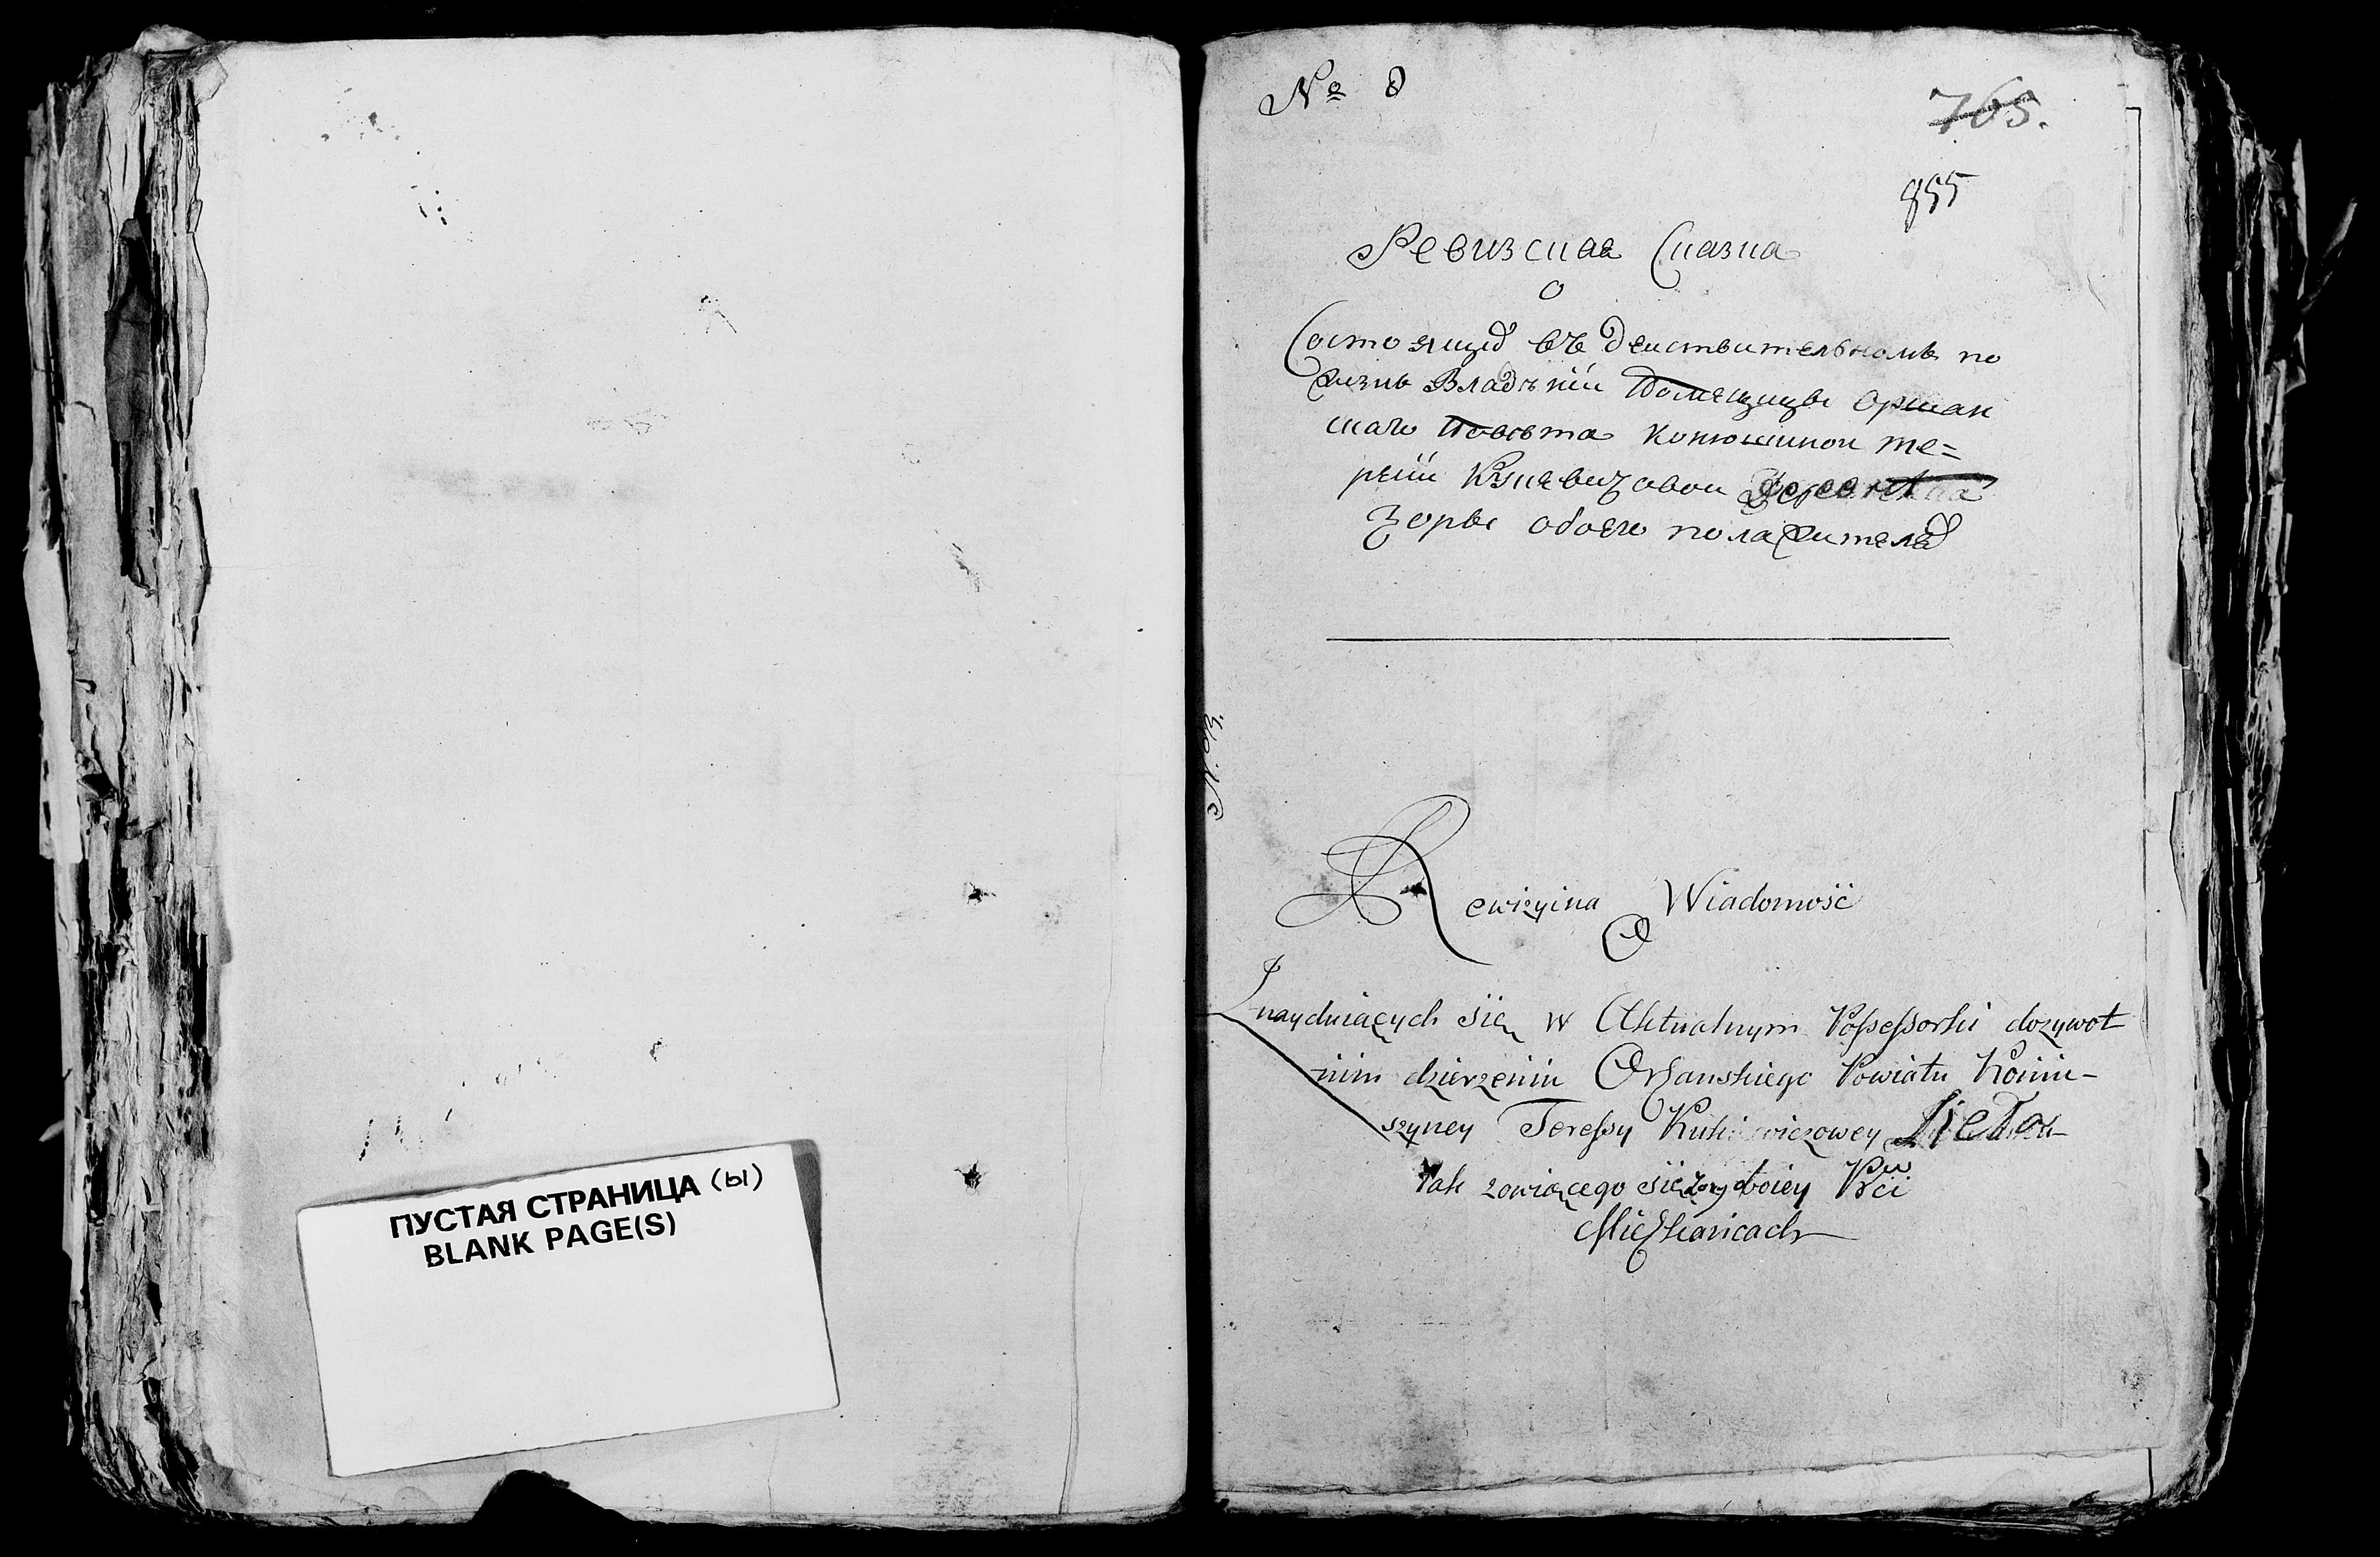 ПУСТАЯ СТРАНИЦА (ы)
BLANK PAGE(S)
№ 8
765.
855
Ревизская Сказка
о
Состоящих въ Деиствительномъ по
жизнь Владѣнiи Помещицы Оршан
скаго Повѣта Конюшинои Те=
решi Куцевичовои
Зоры обоего пола жителях
Rewizyina Wiadomość
O
Znayduiących się w Aktualnym Possessorski dozywot
nim dzierzeniu Orszanskiego Powiatu Koniu-
szyney Teressy
tak zowiącego się Zory oboiey Płci
Mieszkancach